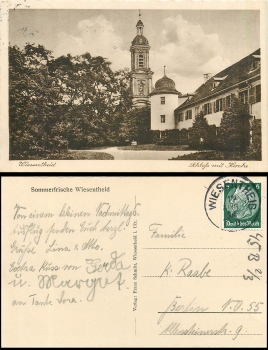 Wiesentheid
Schloß mit Kirche
Sommerfrische Wiesentheid
Von einem kleinen Nachmittags-
ausflug senden Euch herzl.
Grüße Lina &
Extra Küsse von Gerda
u. Margot
an Tante
Verlag: Franz Schmitt, Wiesentheid i. Ufr.
WIESENTHEID
6
Deutsches Reich
Familie
K. Raabe
Berlin N.O. 55